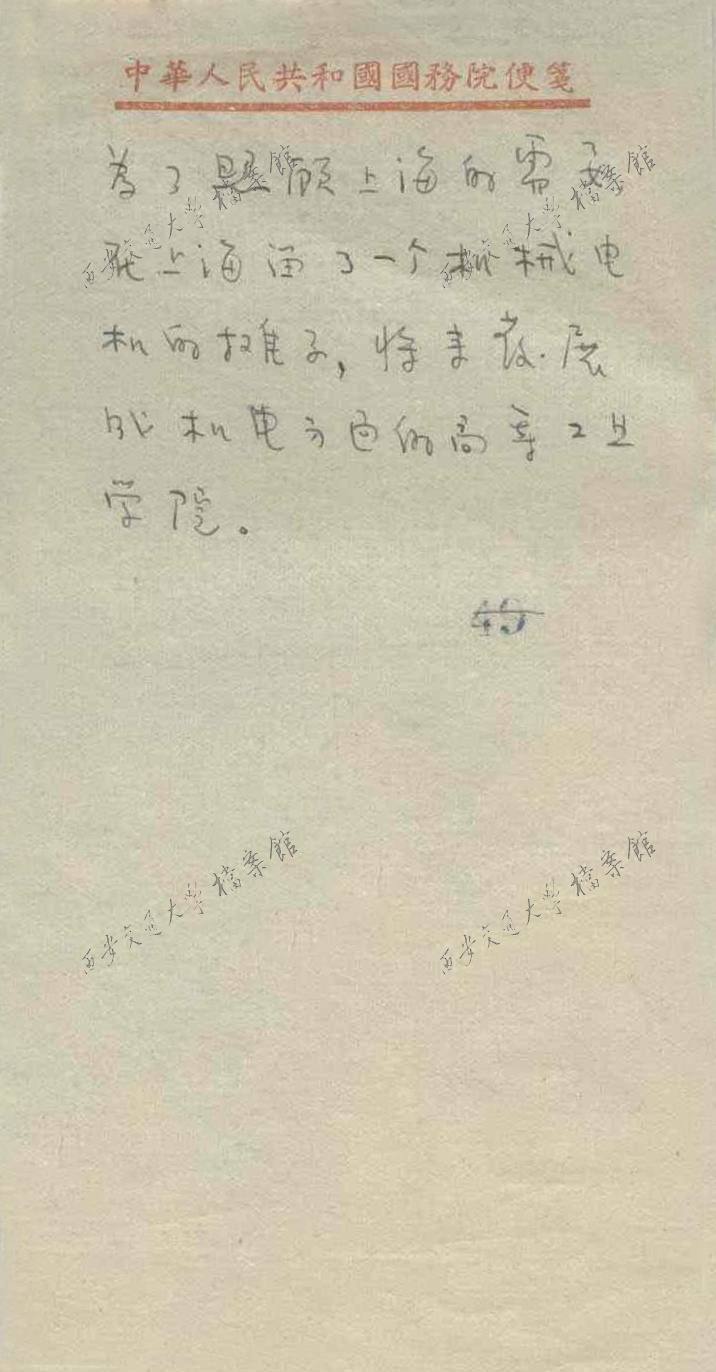 中華人民共和國國務院便箋
为了照顾上海的需要
在上海留了一个机械电
机的摊子，将来发展
成机电方面的高等工业
学院。
45
西安交通大学檔案館
西安交通大学檔案館
西安交通大学檔案館
西安交通大学檔案館